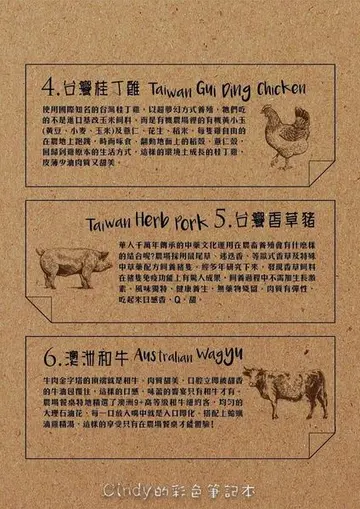 4.台灣桂丁雞 Taiwan Gui Ding Chicken
使用國際知名的台灣桂丁雞，以超夢幻方式養殖，牠們吃
的不是進口基改玉米飼料，而是有機農場裡的有機黃小玉
(黃豆、小麥、玉米)及薏仁、花生、稻米，每隻雞自由的
在農地上跑跳，時而啄食、翻動地面上的稻殼、薏仁殼，
回歸到雞原本的生活方式，這樣的環境土成長的桂丁雞，
皮薄少油肉質又甜美。
Taiwan Herb Pork 5.台灣香草豬
華人千萬年傳承的中華文化運用在農畜養殖會有什麼樣
的結合呢?農場採用鼠尾草、迷迭香、等歐式香草及特殊
中草藥配方飼養豬隻，經多年研究下來，發現香草飼料
在豬隻免疫功能上有驚人成果，飼養過程中不需加生長激
素，風味獨特、健康養生，無藥物殘留，肉質有彈性，
吃起來口感香、Q、甜。
6.澳洲和牛 Australian Wagyu
牛肉金字塔的頂端就是和牛，肉質甜美，口腔立即被甜香
的牛油包覆住，這樣的口感、味蕾的饗宴只有和牛才有，
農場餐桌特地精選了澳洲9+高等級和牛紐約客，均勻的
大理石油花，每一口放入嘴中就是入口即化，搭配上蛤蜊
滴雞精湯，這樣的享受只有在農場餐桌才能體驗!
Cindy的彩色筆記本